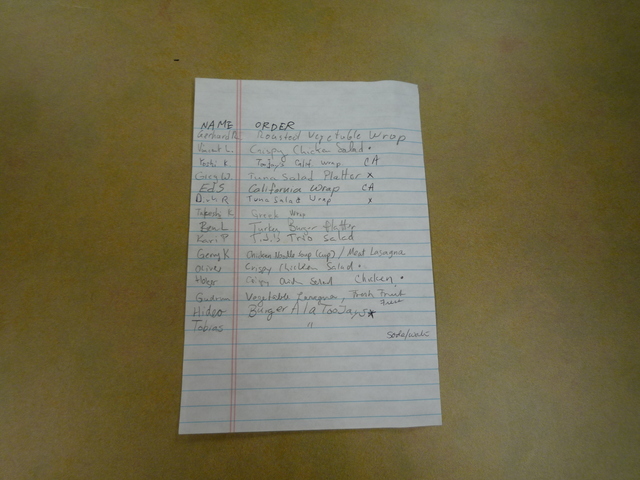 NAME ORDER
Gerhard R. Roasted Vegetable Wrap
Vincent L. Crispy Chicken Salad •
Yoshi K TooJay's Calif. Wrap CA
Greg W. Tuna Salad Platter x
Ed S California Wrap CA
D.W. R Tuna Salad Wrap x
Takeshi K Greek Wrap
Ben L Turkey Burger Platter
Kari P T.J.'s Trio Salad
Gerry K Chicken Noodle Soup (cup) / Meat Lasagna
Oliver Crispy Chicken Salad •
Holger Crispy Salad Chicken •
Gudrun Vegetable Lasagna, Fresh Fruit
Hideo Burger A la TooJay's *
Tobias "
Soda/water